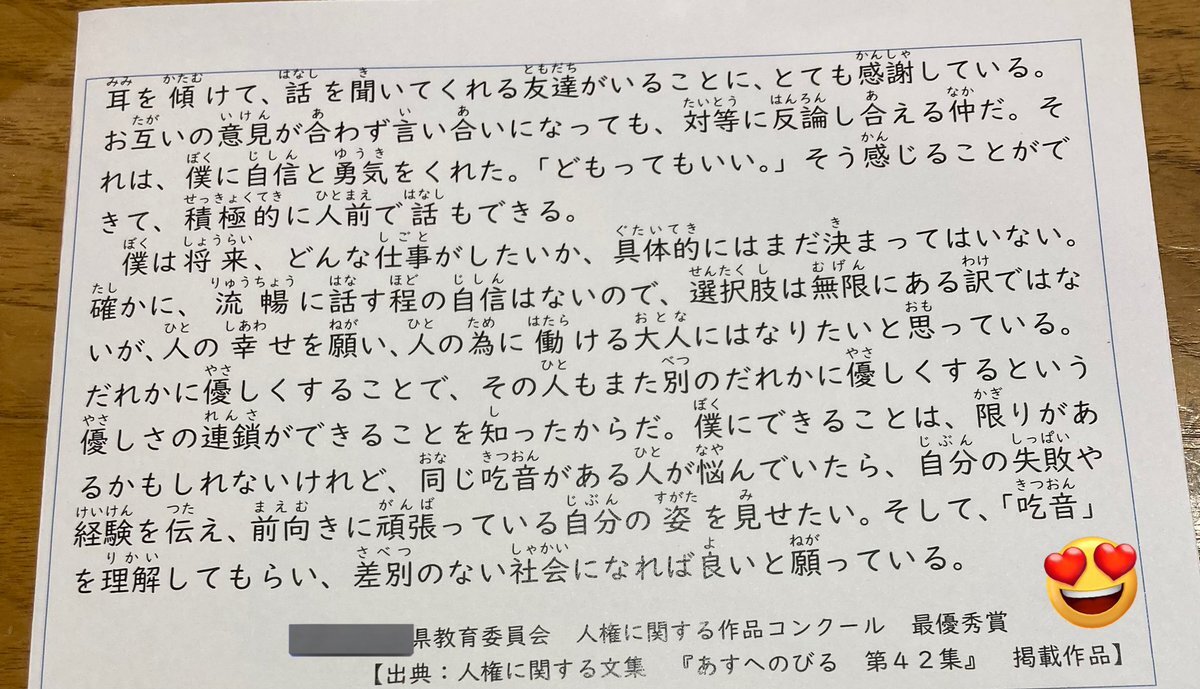 耳を傾けて、話を聞いてくれる友達がいることに、とても感謝している。
お互いの意見が合わず言い合いになっても、対等に反論し合える仲だ。そ
れは、僕に自信と勇気をくれた。「どもってもいい。」そう感じることがで
きて、積極的に人前で話もできる。
僕は将来、どんな仕事がしたいか、具体的にはまだ決まってはいない。
確かに、流暢に話す程の自信はないので、選択肢は無限にある訳ではな
いが、人の幸せを願い、人の為に働ける大人にはなりたいと思っている。
だれかに優しくすることで、その人もまた別のだれかに優しくするという
優しさの連鎖ができることを知ったからだ。僕にできることは、限りがあ
るかもしれないけれど、同じ吃音がある人が悩んでいたら、自分の失敗や
経験を伝え、前向きに頑張っている自分の姿を見せたい。そして、「吃音」
を理解してもらい、差別のない社会になれば良いと願っている。
県教育委員会 人権に関する作品コンクール 最優秀賞
【出典：人権に関する文集 『あすへのびる 第４２集』 掲載作品】